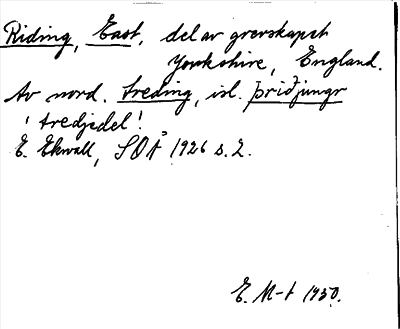 Riding, East, del av grevskapet
Yorkshire, England.
Av nord. treding, isl. þriðjungr
'tredjedel'.
E. Ekwall, SOÅ 1926 s. 2.
E. M-t 1950.